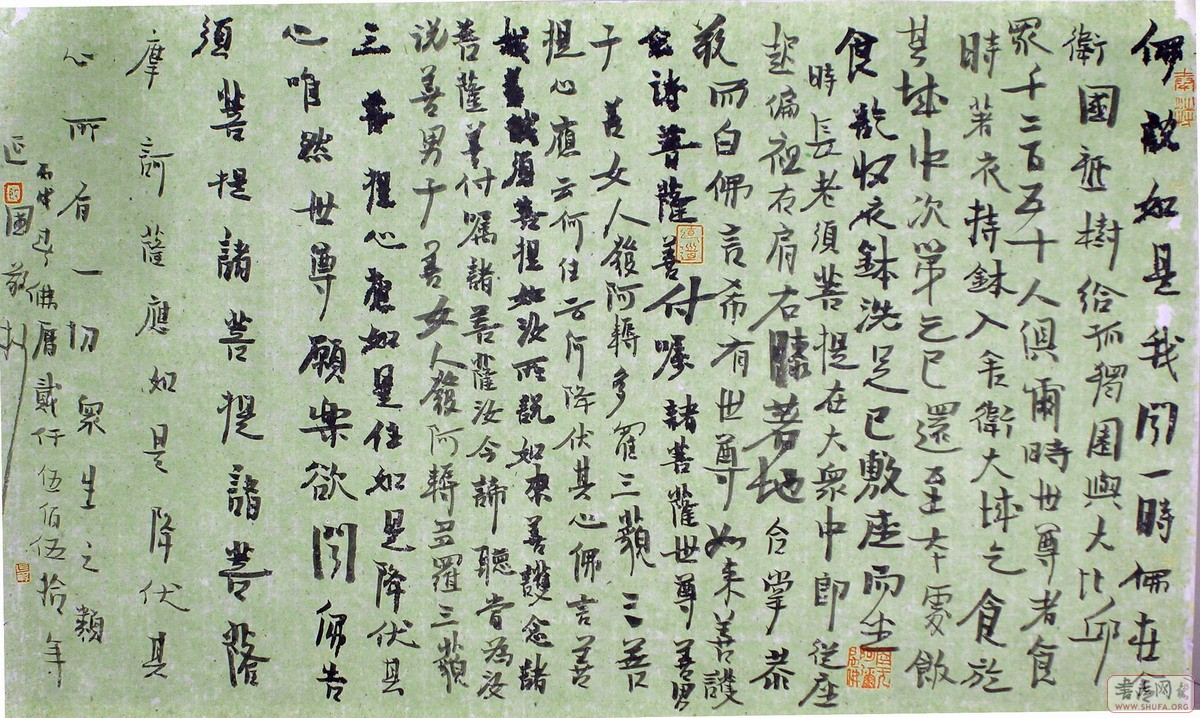 佛說如是我聞一時佛在舍
衛國祗樹給孤獨園與大比邱
眾千二百五十人俱爾時世尊者食
時著衣持鉢入舍衛大城乞食於
其城中次第乞已還至本處飯
食訖收衣鉢洗足已敷座而坐
時長老須菩提在大眾中即從座
起偏袒右肩右膝著地合掌恭
敬而白佛言希有世尊如来善護
念諸菩薩善付囑諸菩薩世尊善男
子善女人發阿耨多羅三藐三菩
提心應云何住云何降伏其心佛言善
哉善哉須菩提如汝所說如來善護念諸
菩薩善付囑諸菩薩汝今諦聽當為汝
说善男子善女人發阿耨多羅三藐
三菩提心應如是住如是降伏其
心唯然世尊願樂欲聞佛告
須菩提諸菩提諸菩薩
摩訶薩應如是降伏其
心所有一切眾生之類
佛曆貳仟伍佰伍拾年
國敬抄
書法网
WWW.SHUFA.ORG